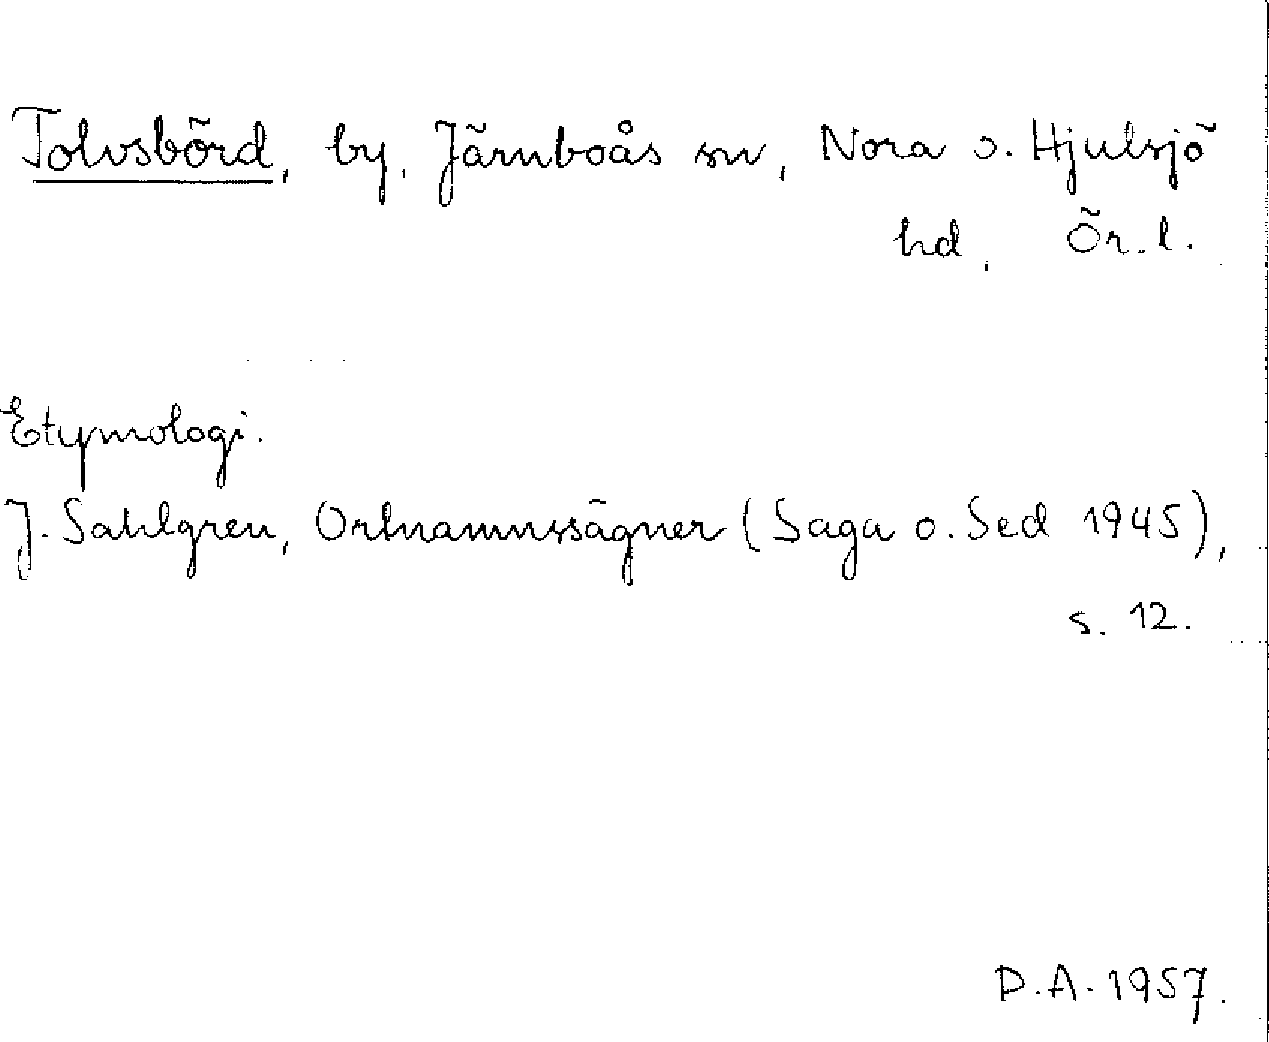 Tolvsbörd, by, Järnboås sn, Nora o. Hjulsjö
hd, Ör. l.
Etymologi.
J. Sahlgren, Ortnamnssägner (Saga o. Sed 1945),
s. 12.
D.A. 1957.